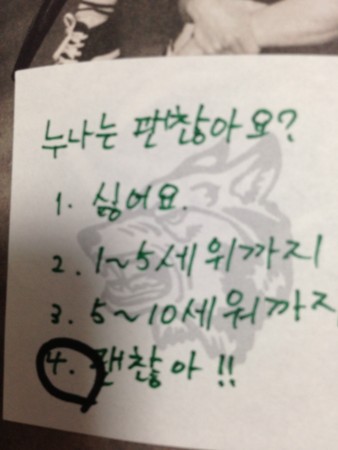 누나는 괜찮아요?
1. 싫어요.
2. 1~5세 위까지
3. 5~10세 위까지
4. 괜찮아!!